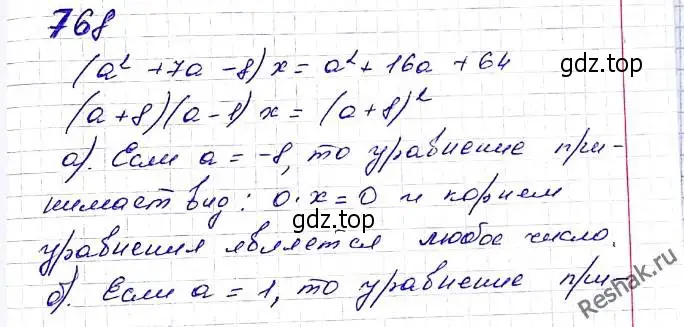 768
(a² + 7a - 8) x = a² + 16a + 64
gdz.top
(a+8)(a-1) x = (a+8)²
а). Если a = -8, то уравнение при-
нимает вид: 0·x=0 и корнем
gdz.top
уравнения является любое число.
б). Если a = 1, то уравнение при-
Reshak.ru